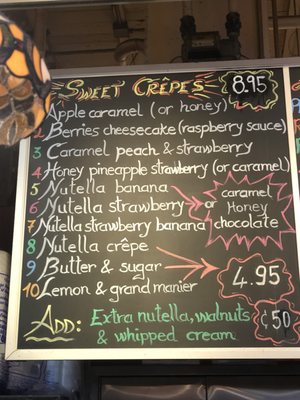 Sweet Crêpes 8.95
Apple caramel (or honey)
2 Berries cheesecake (raspberry sauce)
3 Caramel peach & strawberry
4 Honey pineapple strawberry (or caramel)
5 Nutella banana
6 Nutella strawberry
7 Nutella strawberry banana
or caramel
Honey
chocolate
8 Nutella crêpe
9 Butter & sugar
10 Lemon & grand manier
4.95
Add: Extra nutella, walnuts
& whipped cream
¢50